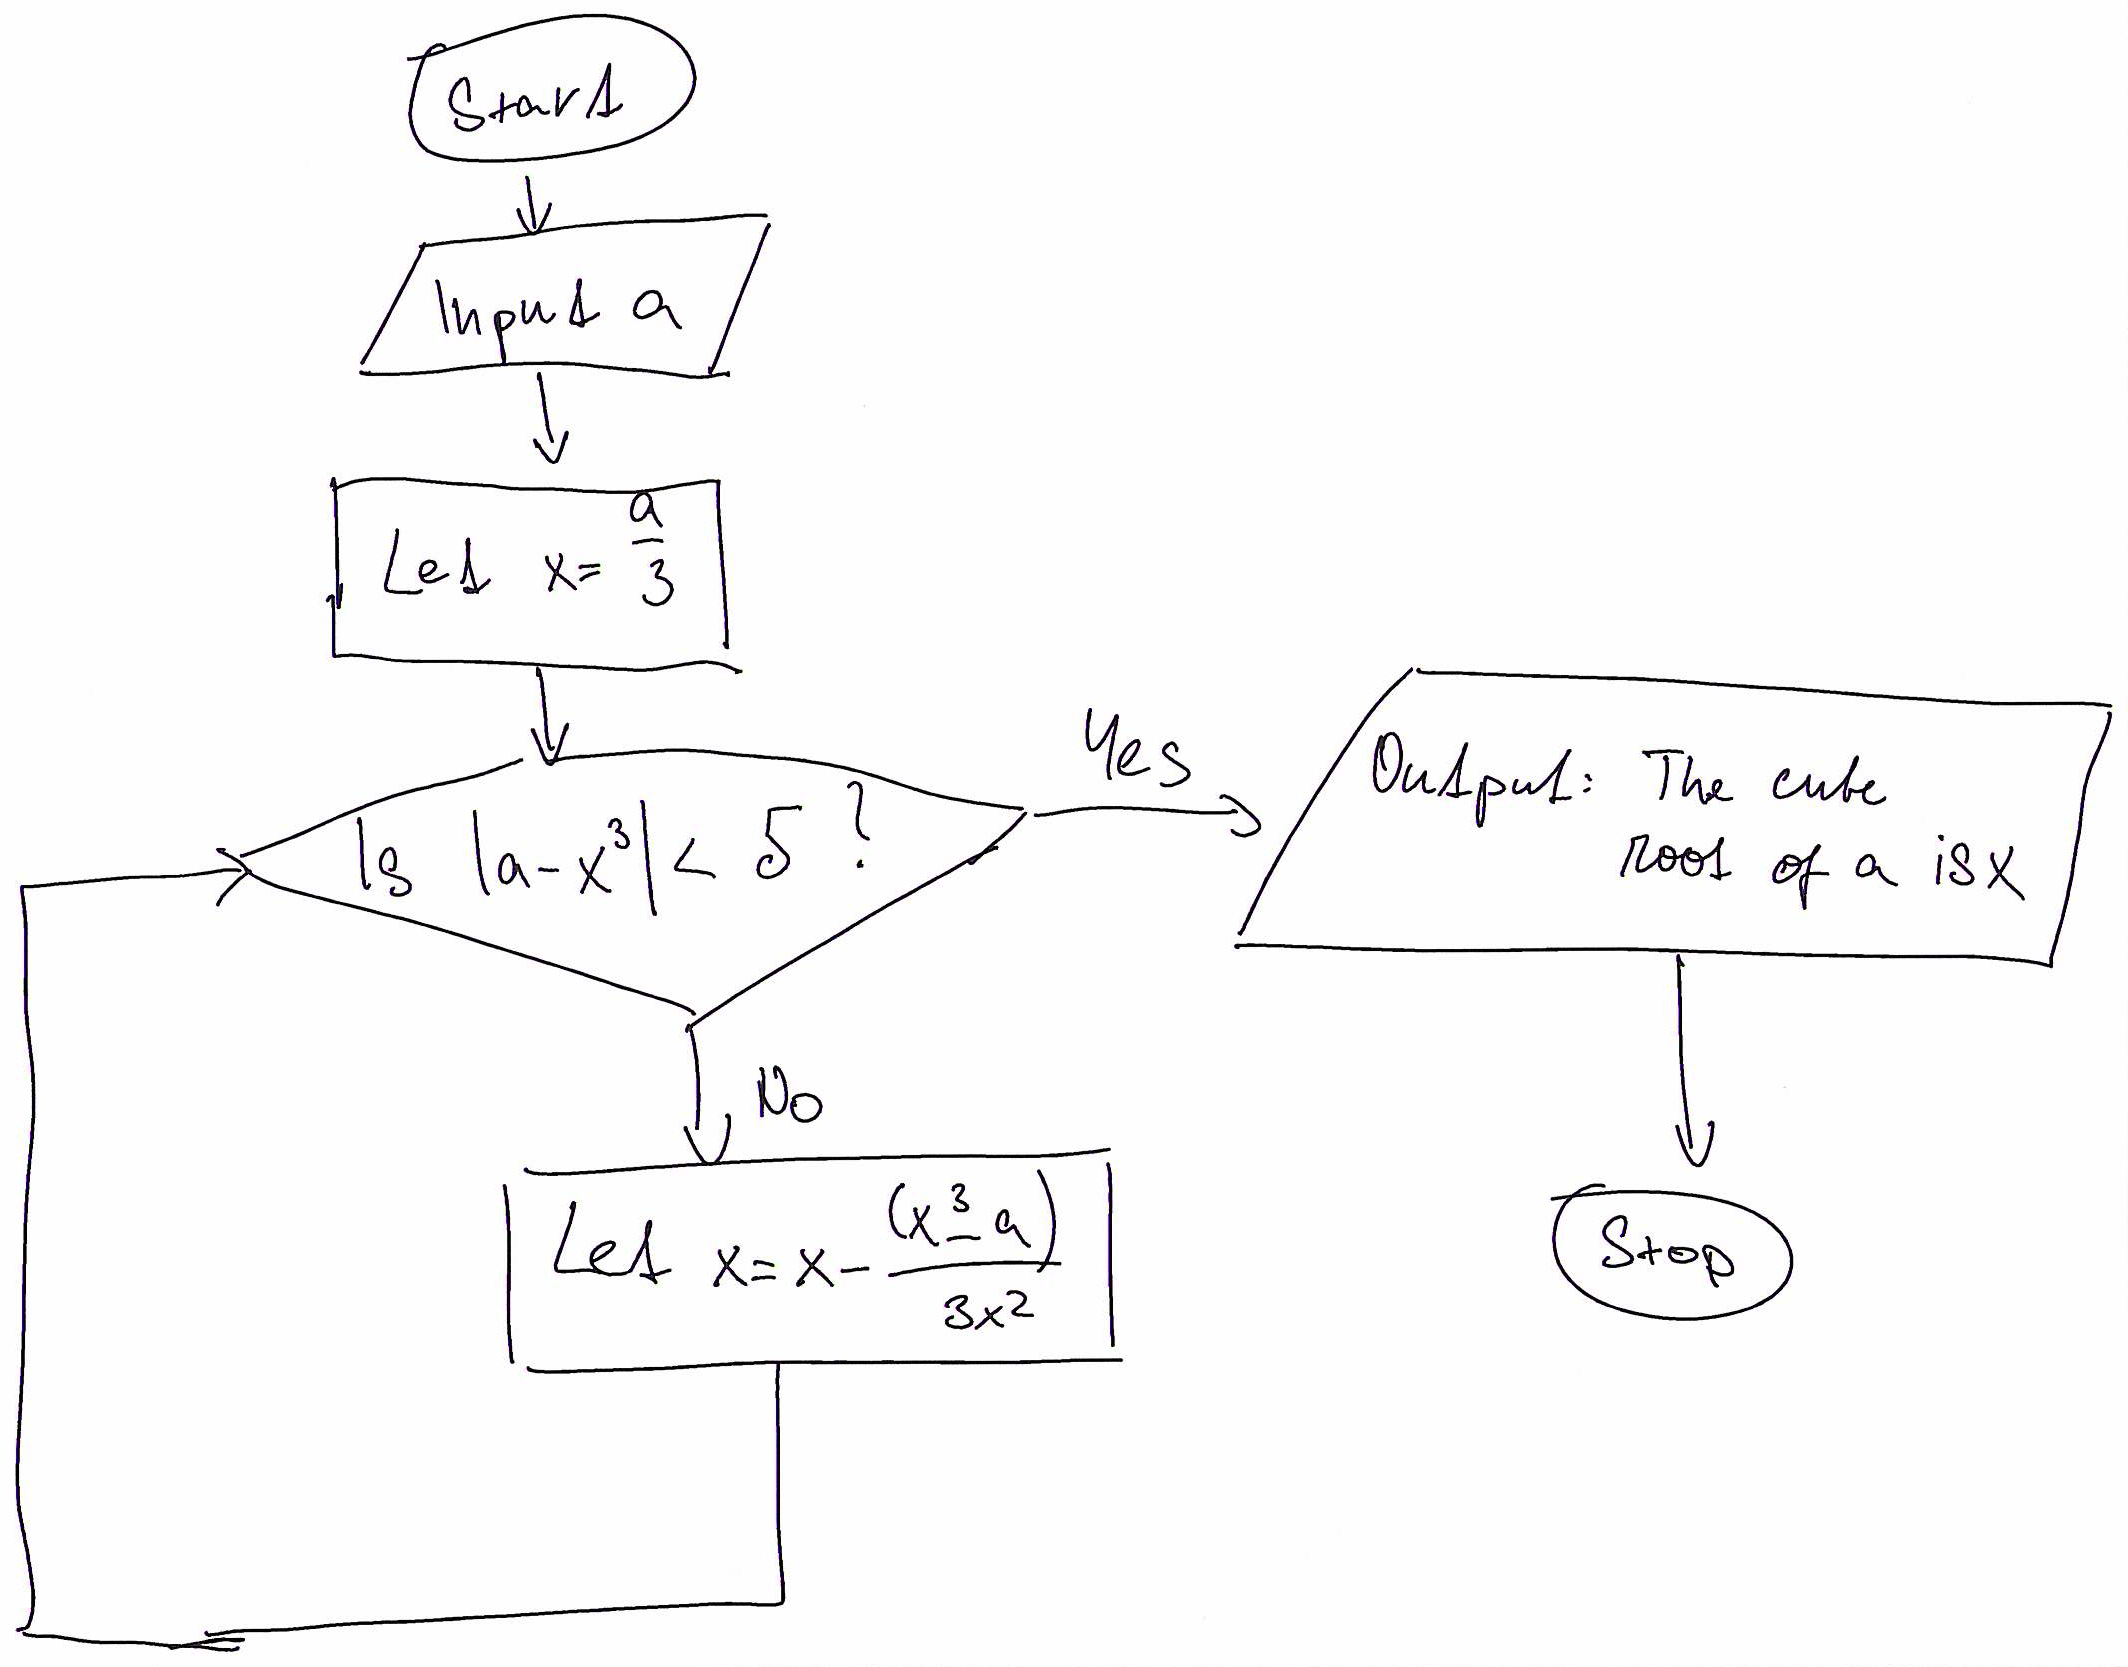 Start
Input a
Let x = a/3
Is |a-x³| < 5 ?
Yes
Output: The cube
root of a is x
No
Let x = x - (x³-a)/3x²
Stop